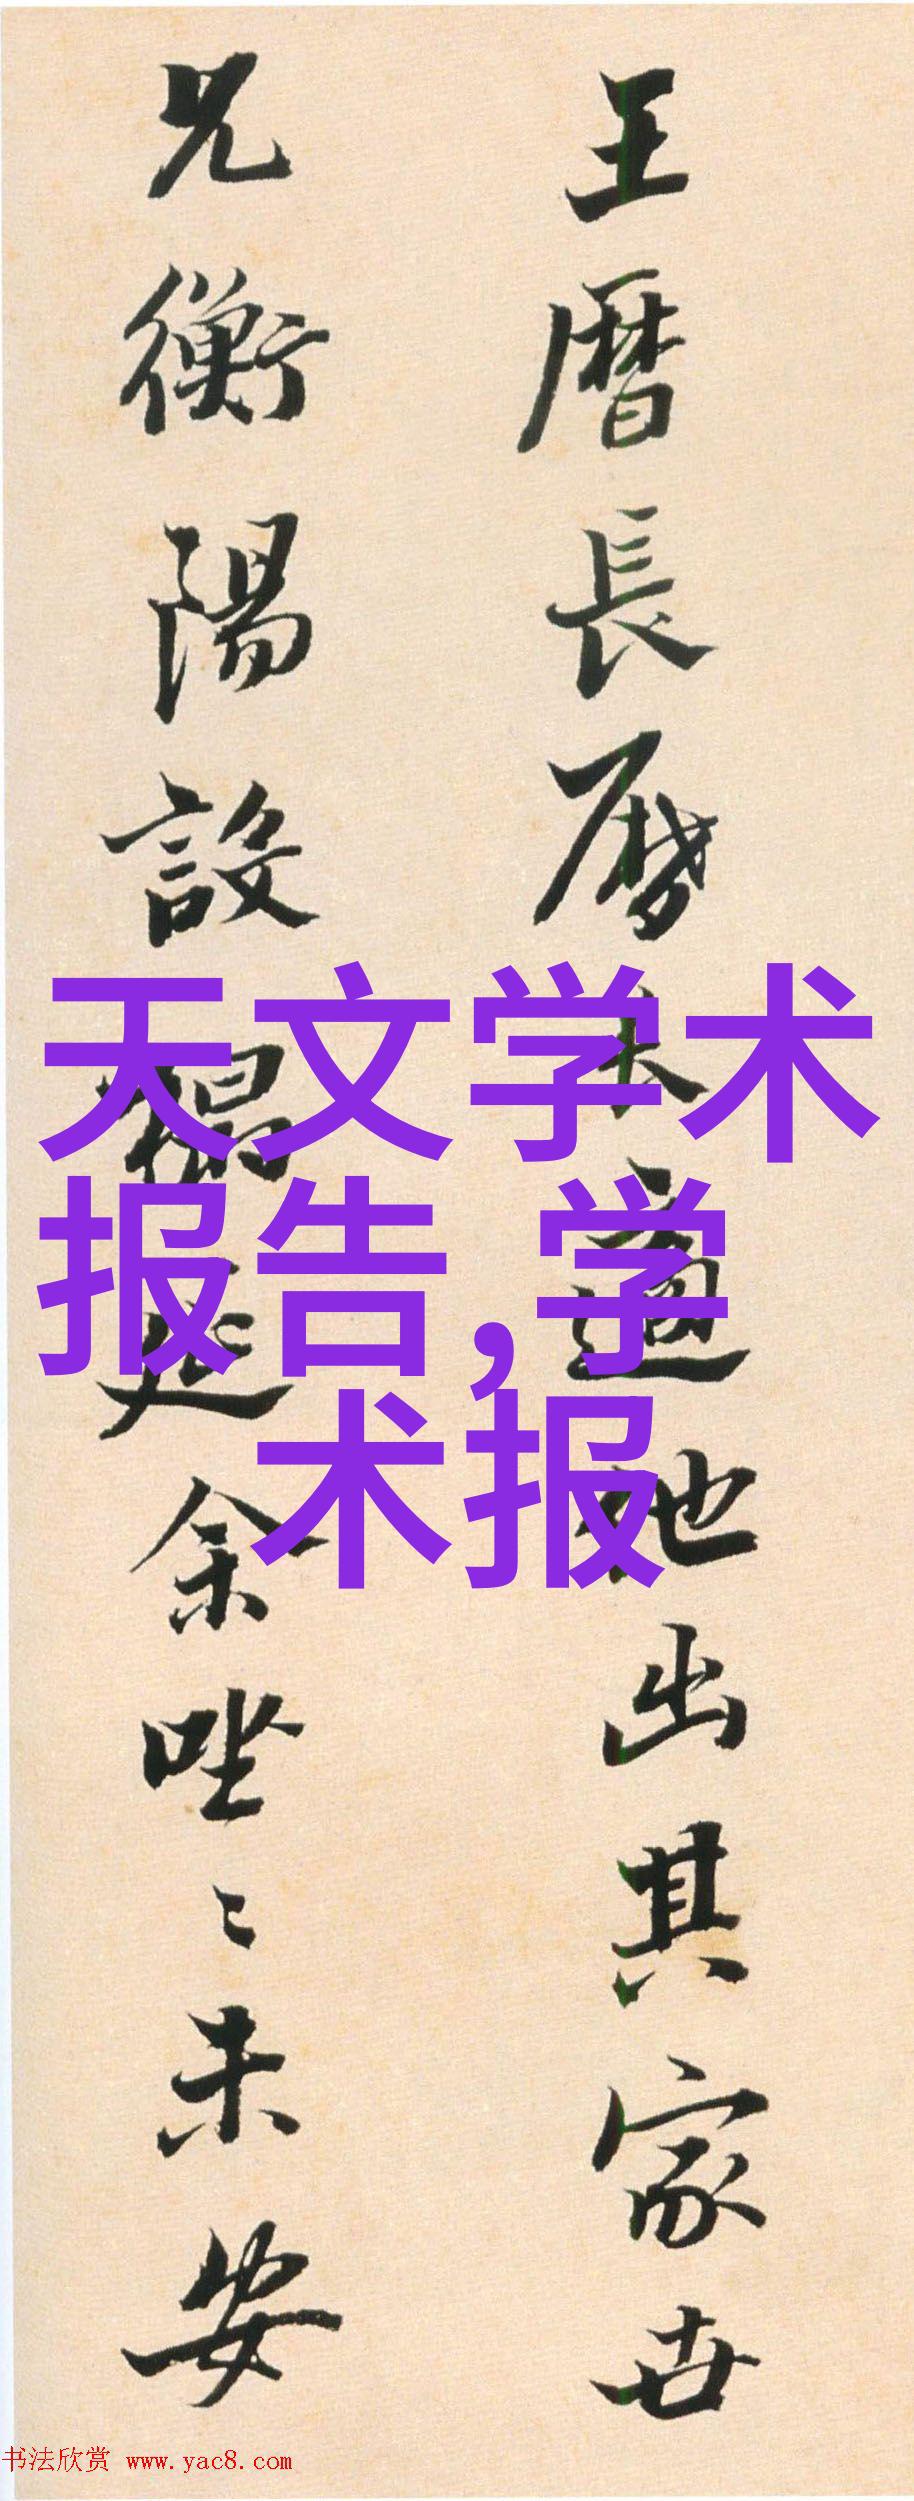 王曆長曆適他出其家世
兄衡陽設榻延余唑〻未安
天文学术
报告,学
术报
书法欣赏 www.yac8.com